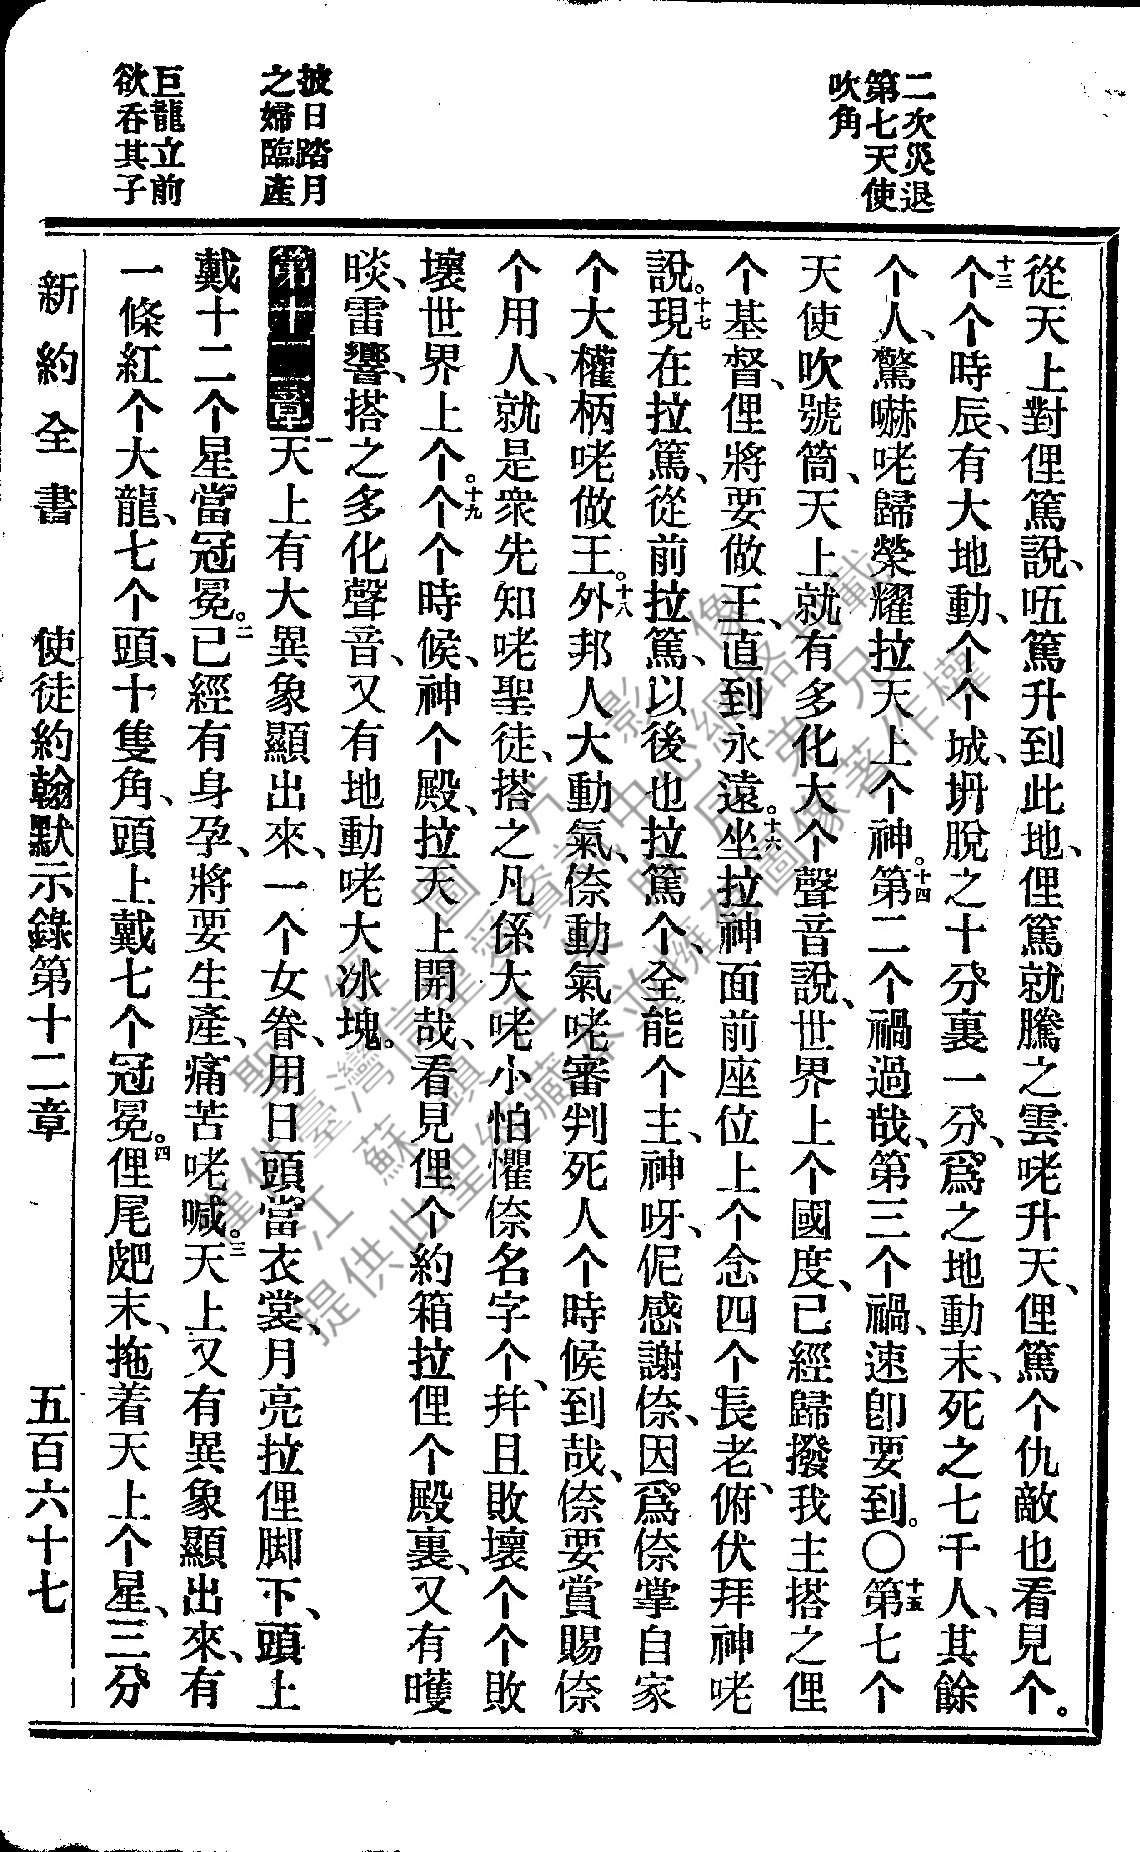 二次災退
第七天使
吹角
披日踏月
之婦臨產
巨龍立前
欲吞其子
從天上對俚篤說、㕶篤升到此地、俚篤就騰之雲咾升天、俚篤个仇敵也看見个。
十三个个時辰、有大地動、个个城、坍脫之十分裏一分、爲之地動末、死之七千人、其餘
个人、驚嚇咾歸榮耀拉天上个神。十四第二个禍過哉、第三个禍、速卽要到。〇十五第七个
天使吹號筒、天上就有多化大个聲音說、世界上个國度、已經歸撥我主搭之俚
个基督、俚將要做王、直到永遠。十六坐拉神面前座位上个念四个長老、俯伏拜神咾
說。十七現在拉篤、從前拉篤、以後也拉篤个、全能个主、神呀、伲感謝倷、因爲倷掌自家
个大權柄咾做王。十八外邦人大動氣、倷動氣咾審判死人个時候到哉、倷要賞賜倷
个用人、就是衆先知咾聖徒、搭之凡係大咾小怕懼倷名字个、幷且敗壞个个敗
壞世界上个。十九个个時候、神个殿、拉天上開哉、看見俚个約箱拉俚个殿裏、又有矆
睒、雷響、搭之多化聲音、又有地動咾大冰塊。
第十二章 一天上有大異象顯出來、一个女眷、用日頭當衣裳、月亮拉俚脚下、頭上
戴十二个星當冠冕。二已經有身孕、將要生產、痛苦咾喊。三天上又有異象顯出來、有
一條紅个大龍、七个頭、十隻角、頭上戴七个冠冕。四俚尾巴末、拖着天上个星、三分
新約全書 使徒約翰默示錄第十二章 五百六十七